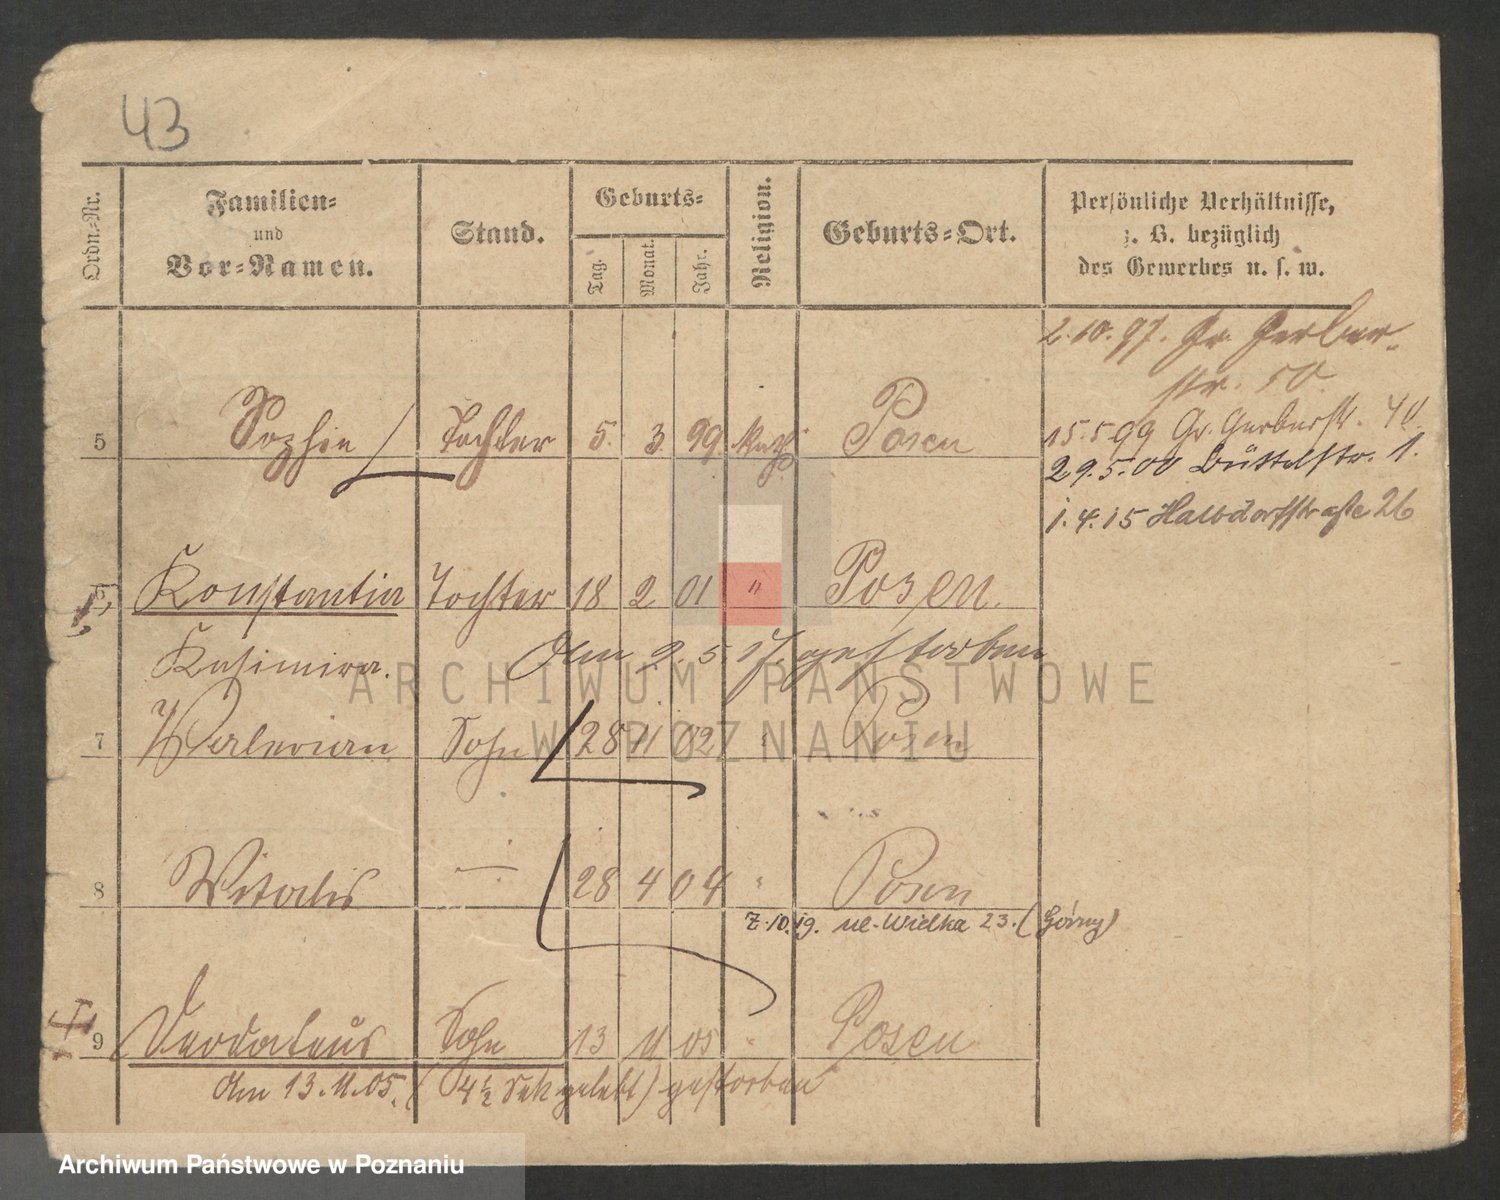 43
Ordn.-Nr.
Familien-
und
Vor-Namen.
Stand.
Geburts-
Tag.
Monat.
Jahr.
Religion.
Geburts-Ort.
Persönliche Verhältnisse,
z. B. bezüglich
des Gewerbes u. s. w.
2.10.97. Gr. Gerber-
str. 50.
5 Sophie Tochter 5. 3. 99. kath. Posen
15.5.99 Gr. Gerberstr. 40.
29.5.00 Büttelstr. 1.
1.4.15 Halbdorfstraße 26
6 Konstantia Tochter 18 2 01 " Posen.
Kasimira. Am 2.5.17. gestorben
7 Valerian Sohn 28 11 02 " Posen
8 Vitalis — 28 4 04 " Posen
7.10.19. ul. Wielka 23. (Górny)
9 Deodateus Sohn 13 11 05 " Posen
Am 13.11.05. (4½ gelebt) gestorben
ARCHIWUM PAŃSTWOWE
W POZNANIU
Archiwum Państwowe w Poznaniu